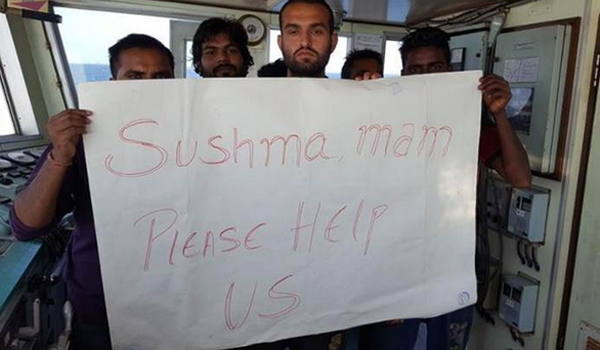 Sushma, mam
PLEASE HELP
US